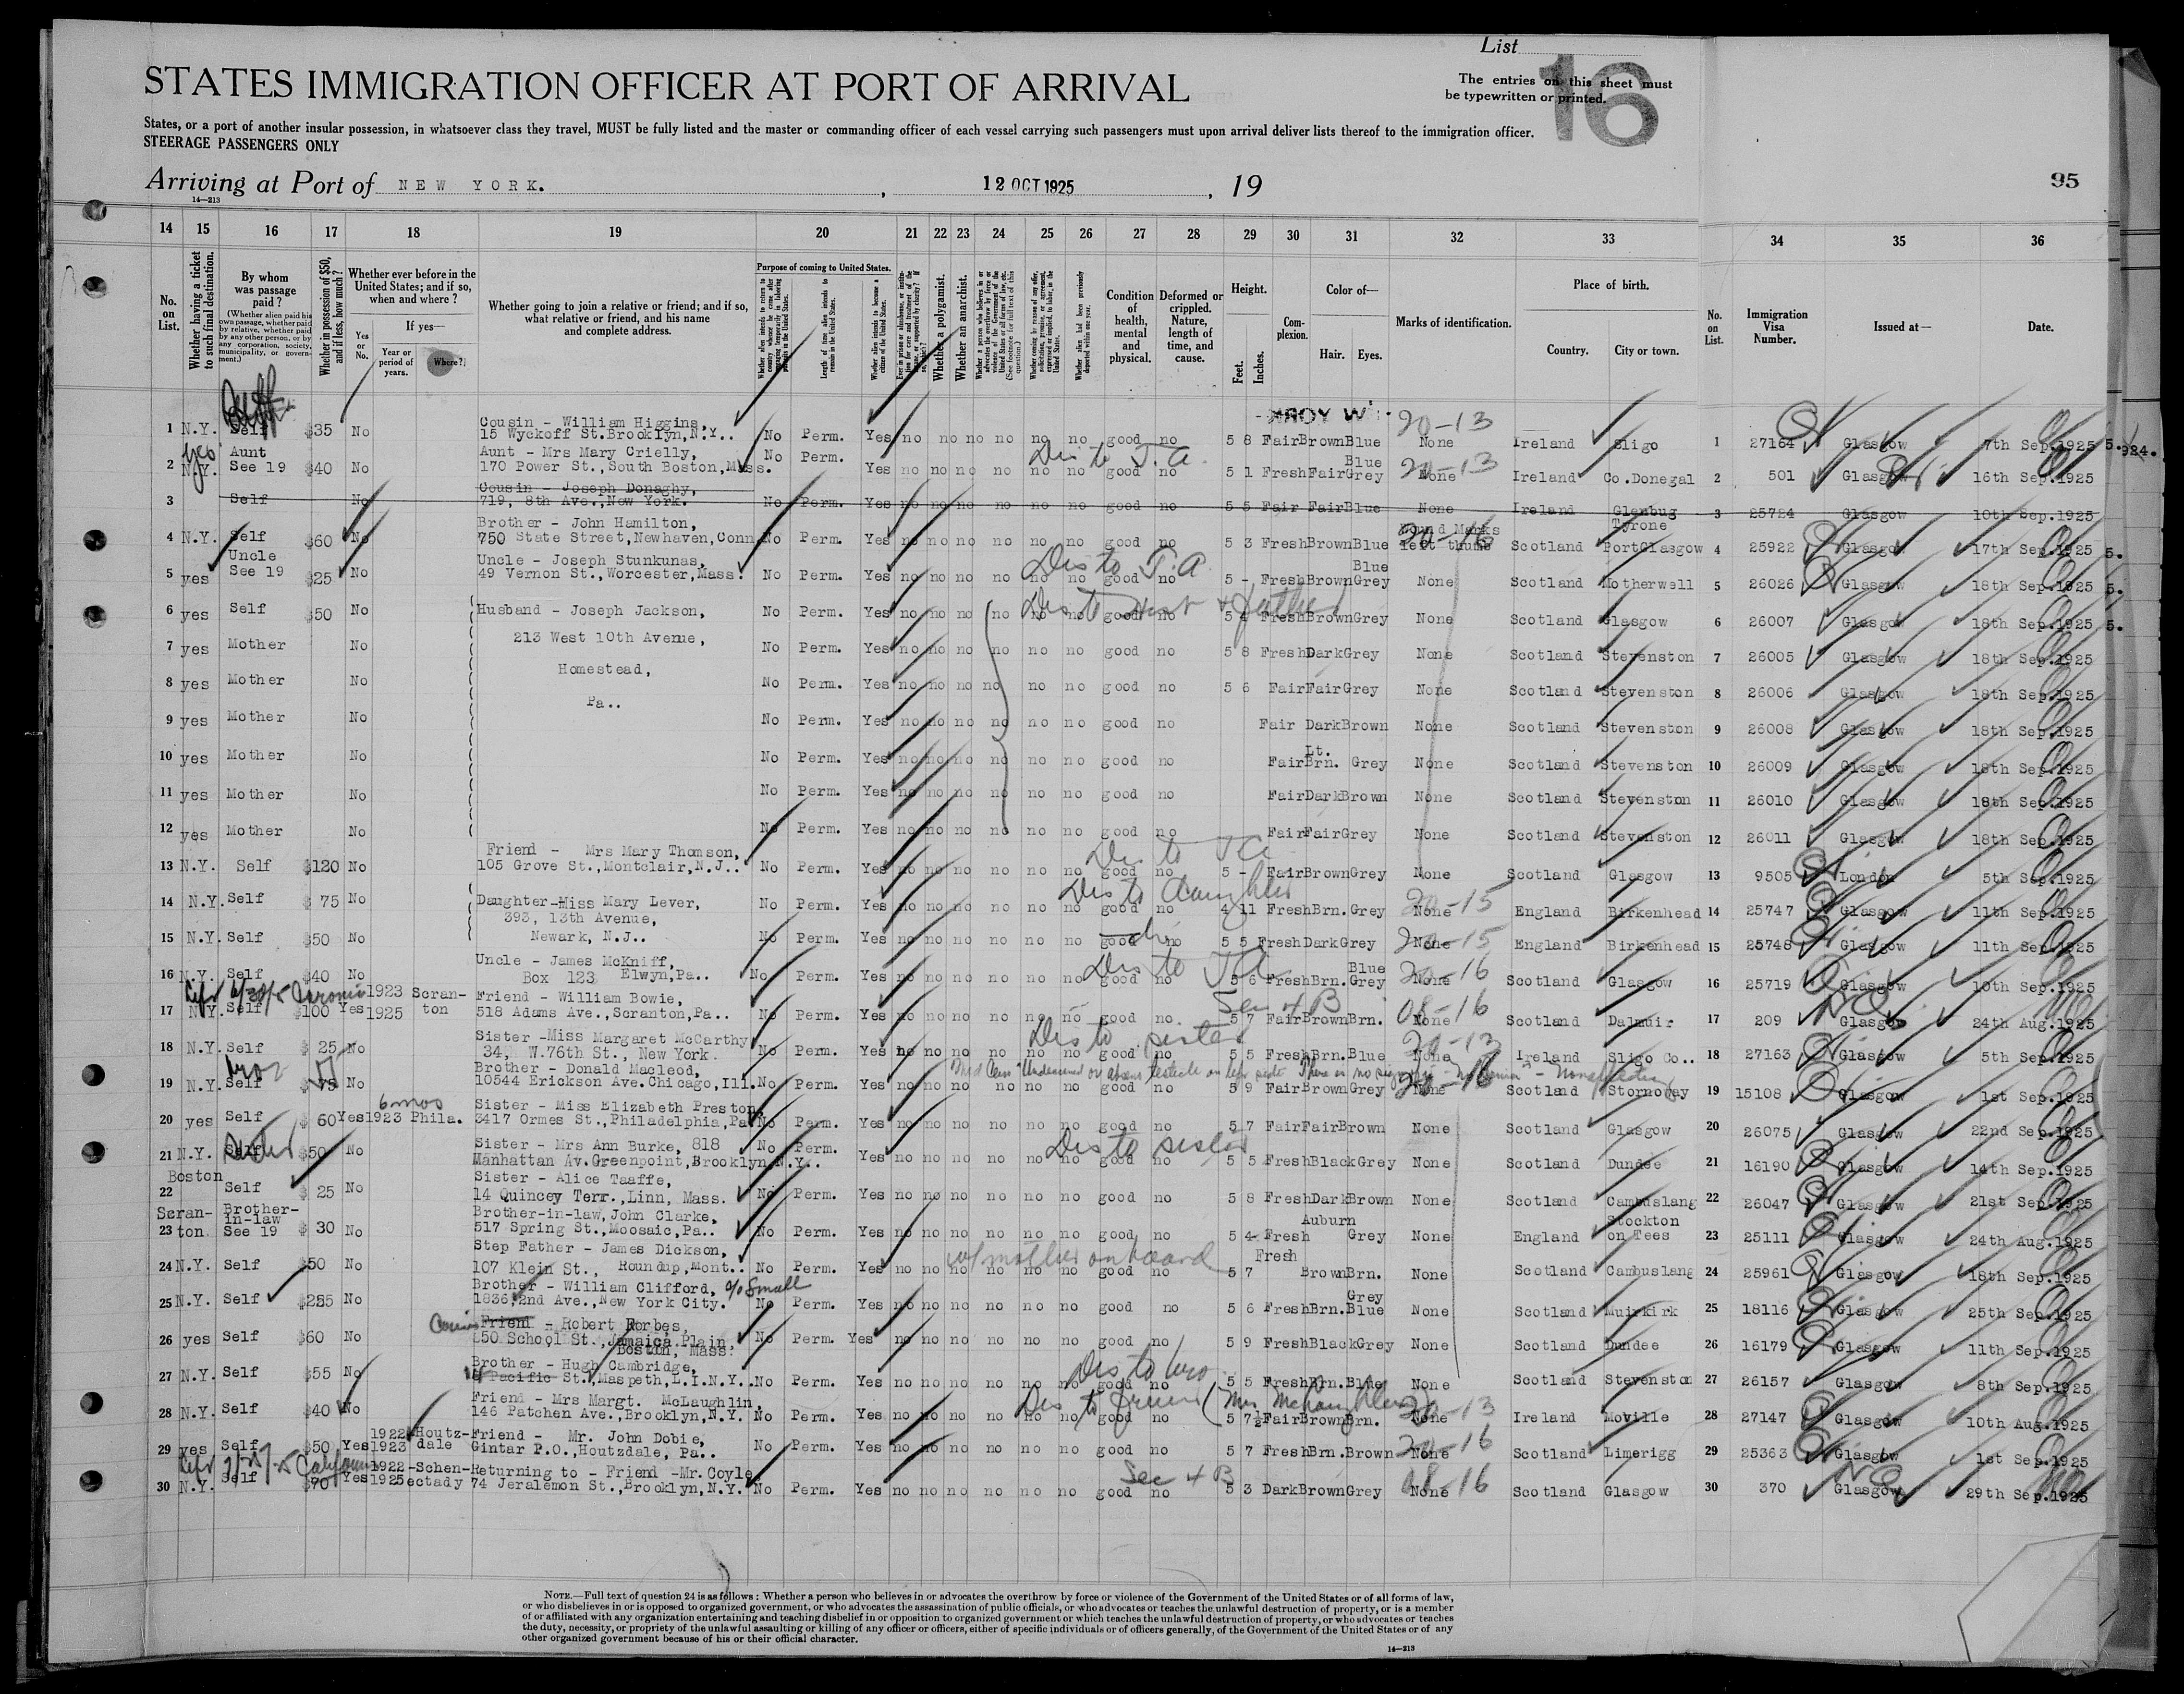 List
16
STATES IMMIGRATION OFFICER AT PORT OF ARRIVAL
The entries on this sheet must
be typewritten or printed.
States, or a port of another insular possession, in whatsoever class they travel, MUST be fully listed and the master or commanding officer of each vessel carrying such passengers must upon arrival deliver lists thereof to the immigration officer.
STEERAGE PASSENGERS ONLY
Arriving at Port of NEW YORK. , 12 OCT 1925 , 19
95
14—213
14 15 16 17 18 19 20 21 22 23 24 25 26 27 28 29 30 31 32 33 34 35 36
No. on List.
Whether having a ticket to such final destination.
By whom was passage paid?
(Whether alien paid his own passage, whether paid by relative, whether paid by any other person, or by any corporation, society, municipality, or government.)
Whether in possession of $50, and if less, how much?
Whether ever before in the United States; and if so, when and where?
Yes or No.
If yes—
Year or period of years.
Where?
Whether going to join a relative or friend; and if so, what relative or friend, and his name and complete address.
Purpose of coming to United States.
Length of time alien intends to remain in the United States.
Whether alien intends to become a citizen of the United States.
Whether a polygamist.
Whether an anarchist.
Condition of health, mental and physical.
Deformed or crippled. Nature, length of time, and cause.
Height.
Feet. Inches.
Complexion.
Color of—
Hair. Eyes.
Marks of identification.
Place of birth.
Country. City or town.
No. on List.
Immigration Visa Number.
Issued at—
Date.
1 N.Y. Self $35 No Cousin - William Higgins, 15 Wyckoff St.Brooklyn,N.Y.. No Perm. Yes no no no no no no good no 5 8 Fair Brown Blue None 20-13 Ireland Sligo 1 27164 Glasgow 7th Sep.1925
2 yes N.Y. Aunt See 19 $40 No Aunt - Mrs Mary Crielly, 170 Power St.,South Boston,Mass. No Perm. Yes no no no no no no good no 5 1 Fresh Fair Blue Grey None 20-13 Ireland Co.Donegal 2 501 Glasgow 16th Sep.1925
3 Self No Cousin - Joseph Donaghy, 719, 8th Ave.,New York. No Perm. Yes no no no no no no good no 5 5 Fair Fair Blue None Ireland Glenbug Tyrone 3 25724 Glasgow 10th Sep.1925
4 N.Y. Self $60 No Brother - John Hamilton, 750 State Street,Newhaven,Conn No Perm. Yes no no no no no no good no 5 3 Fresh Brown Blue left thumb 20-16 Scotland PortGlasgow 4 25922 Glasgow 17th Sep.1925
5 yes Uncle See 19 $25 No Uncle - Joseph Stunkunas, 49 Vernon St.,Worcester,Mass. No Perm. Yes no no no no no no good no 5 - Fresh Brown Blue Grey None Scotland Motherwell 5 26026 Glasgow 18th Sep.1925
6 yes Self $50 No Husband - Joseph Jackson, No Perm. Yes no no no no no no good no 5 4 Fresh Brown Grey None Scotland Glasgow 6 26007 Glasgow 18th Sep.1925
7 yes Mother No 213 West 10th Avenue, No Perm. Yes no no no no no no good no 5 8 Fresh Dark Grey None Scotland Stevenston 7 26005 Glasgow 18th Sep.1925
8 yes Mother No Homestead, No Perm. Yes no no no no no no good no 5 6 Fair Fair Grey None Scotland Stevenston 8 26006 Glasgow 18th Sep.1925
9 yes Mother No Pa.. No Perm. Yes no no no no no no good no Fair Dark Brown None Scotland Stevenston 9 26008 Glasgow 18th Sep.1925
10 yes Mother No No Perm. Yes no no no no no no good no Fair Lt. Brn. Grey None Scotland Stevenston 10 26009 Glasgow 18th Sep.1925
11 yes Mother No No Perm. Yes no no no no no no good no Fair Dark Brown None Scotland Stevenston 11 26010 Glasgow 18th Sep.1925
12 yes Mother No No Perm. Yes no no no no no no good no Fair Fair Grey None Scotland Stevenston 12 26011 Glasgow 18th Sep.1925
13 N.Y. Self $120 No Friend - Mrs Mary Thomson, 105 Grove St.,Montclair,N.J.. No Perm. Yes no no no no no no good no 5 - Fair Brown Grey None Scotland Glasgow 13 9505 London 5th Sep.1925
14 N.Y. Self $ 75 No Daughter-Miss Mary Lever, 393, 13th Avenue, No Perm. Yes no no no no no no good no 4 11 Fresh Brn. Grey None 20-15 England Birkenhead 14 25747 Glasgow 11th Sep.1925
15 N.Y. Self $50 No Newark, N.J.. No Perm. Yes no no no no no no good no 5 5 Fresh Dark Grey None 20-15 England Birkenhead 15 25748 Glasgow 11th Sep.1925
16 N.Y. Self $40 No Uncle - James McKniff, Box 123 Elwyn,Pa.. No Perm. Yes no no no no no no good no 5 6 Fresh Brn. Blue Grey None 20-16 Scotland Glasgow 16 25719 Glasgow 10th Sep.1925
17 N.Y. Self $100 Yes 1923 1925 Scranton Friend - William Bowie, 518 Adams Ave.,Scranton,Pa.. No Perm. Yes no no no no no no good no 5 7 Fair Brown Brn. None 08-16 Scotland Dalmuir 17 209 Glasgow 24th Aug.1925
18 N.Y. Self $ 25 No Sister -Miss Margaret McCarthy 34, W.76th St., New York. No Perm. Yes no no no no no no good no 5 5 Fresh Brn. Blue None 20-13 Ireland Sligo Co.. 18 27163 Glasgow 5th Sep.1925
19 N.Y. Self $75 No Brother - Donald Macleod, 10544 Erickson Ave.Chicago,Ill. No Perm. Yes no no no no no no good no 5 9 Fair Brown Grey None 20-16 Scotland Stornoway 19 15108 Glasgow 1st Sep.1925
20 yes Self $ 60 Yes 6 mos 1923 Phila. Sister - Miss Elizabeth Preston, 3417 Ormes St.,Philadelphia,Pa No Perm. Yes no no no no no no good no 5 7 Fair Fair Brown None Scotland Glasgow 20 26075 Glasgow 22nd Sep.1925
21 N.Y. Self $50 No Sister - Mrs Ann Burke, 818 Manhattan Av.Greenpoint,Brooklyn N.Y.. No Perm. Yes no no no no no no good no 5 5 Fresh Black Grey None Scotland Dundee 21 16190 Glasgow 14th Sep.1925
22 Boston Self $ 25 No Sister - Alice Taaffe, 14 Quincey Terr.,Linn, Mass. No Perm. Yes no no no no no no good no 5 8 Fresh Dark Brown None Scotland Cambuslang 22 26047 Glasgow 21st Sep.1925
23 Scranton Brother-in-law See 19 $ 30 No Brother-in-law, John Clarke, 517 Spring St.,Moosaic,Pa.. No Perm. Yes no no no no no no good no 5 4 Fresh Auburn Grey None England Stockton on Tees 23 25111 Glasgow 24th Aug.1925
24 N.Y. Self $50 No Step Father - James Dickson, 107 Klein St., Roundup,Mont.. No Perm. Yes no no no no no no good no 5 7 Fresh Brown Brn. None Scotland Cambuslang 24 25961 Glasgow 18th Sep.1925
25 N.Y. Self No Brother - William Clifford, c/o Small 1836,2nd Ave.,New York City. No Perm. Yes no no no no no no good no 5 6 Fresh Brn. Grey Blue None Scotland Muirkirk 25 18116 Glasgow 25th Sep.1925
26 yes Self $60 No Cousin Friend - Robert Forbes, School St.,Jamaica Plain, Boston, Mass. No Perm. Yes no no no no no no good no 5 9 Fresh Black Grey None Scotland Dundee 26 16179 Glasgow 11th Sep.1925
27 N.Y. Self $55 No Brother - Hugh Cambridge, Pacific St.,Maspeth,L.I.N.Y.. No Perm. Yes no no no no no no good no 5 5 Fresh Brn. Blue None Scotland Stevenston 27 26157 Glasgow 8th Sep.1925
28 N.Y. Self $40 No Friend - Mrs Margt. McLaughlin, 146 Patchen Ave.,Brooklyn,N.Y. No Perm. Yes no no no no no no good no 5 7½ Fair Brown Brn. None 20-13 Ireland Moville 28 27147 Glasgow 10th Aug.1925
29 yes Self $50 Yes 1922 1923 Houtzdale Friend - Mr. John Dobie, Gintar P.O.,Houtzdale, Pa.. No Perm. Yes no no no no no no good no 5 7 Fresh Brn. Brown None 20-16 Scotland Limerigg 29 25363 Glasgow 1st Sep.1925
30 N.Y. Self $70 Yes 1922- 1925 Schenectady Returning to - Friend -Mr. Coyle, 74 Jeralemon St.,Brooklyn,N.Y. No Perm. Yes no no no no no no good no 5 3 Dark Brown Grey None 08-16 Scotland Glasgow 30 370 Glasgow 29th Sep.1925
NOTE.—Full text of question 24 is as follows: Whether a person who believes in or advocates the overthrow by force or violence of the Government of the United States or of all forms of law,
or who disbelieves in or is opposed to organized government, or who advocates the assassination of public officials, or who advocates or teaches the unlawful destruction of property, or is a member
of or affiliated with any organization entertaining and teaching disbelief in or opposition to organized government or which teaches the unlawful destruction of property, or who advocates or teaches
the duty, necessity, or propriety of the unlawful assaulting or killing of any officer or officers, either of specific individuals or of officers generally, of the Government of the United States or of any
other organized government because of his or their official character.
14—213